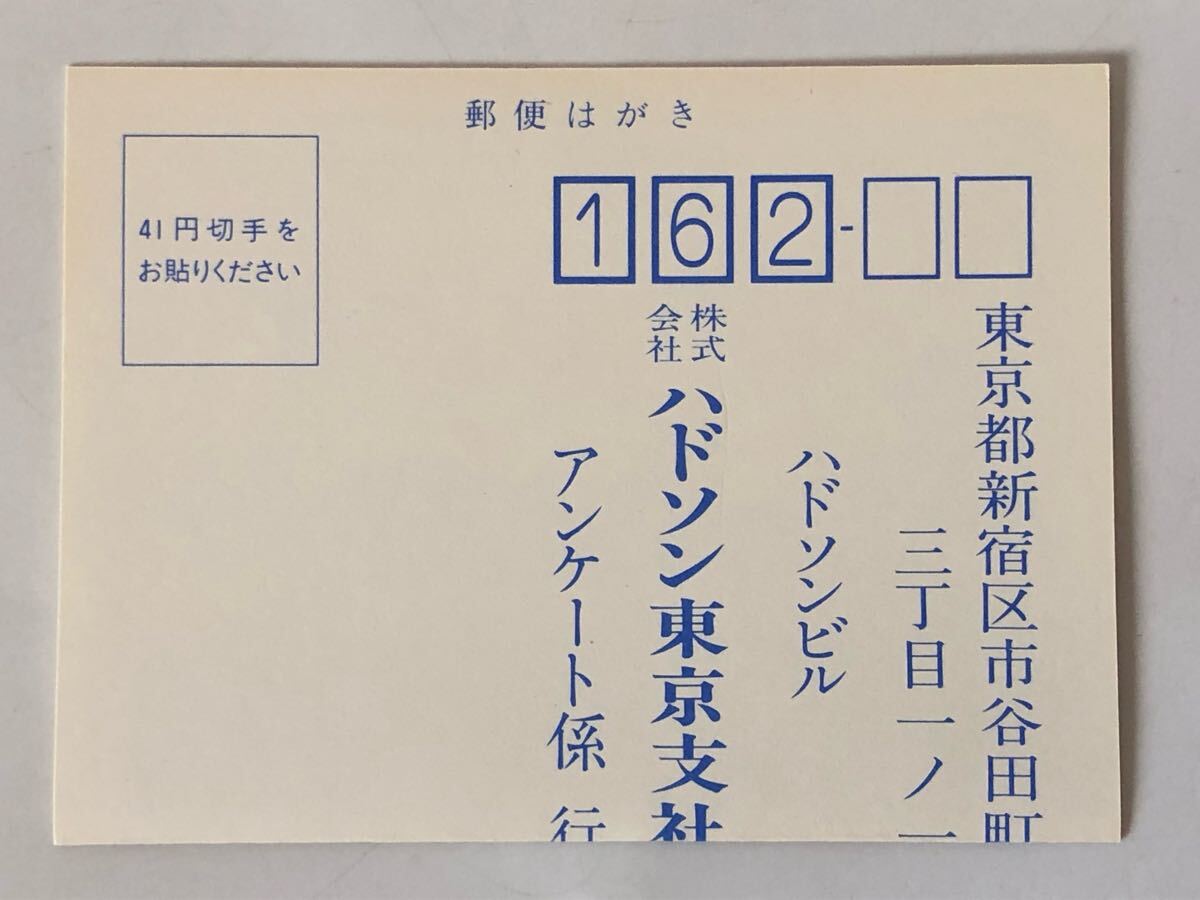 郵便はがき
41円切手を
お貼りください
162-
東京都新宿区市谷田町
三丁目一ノ一
ハドソンビル
株式会社ハドソン東京支社
アンケート係 行